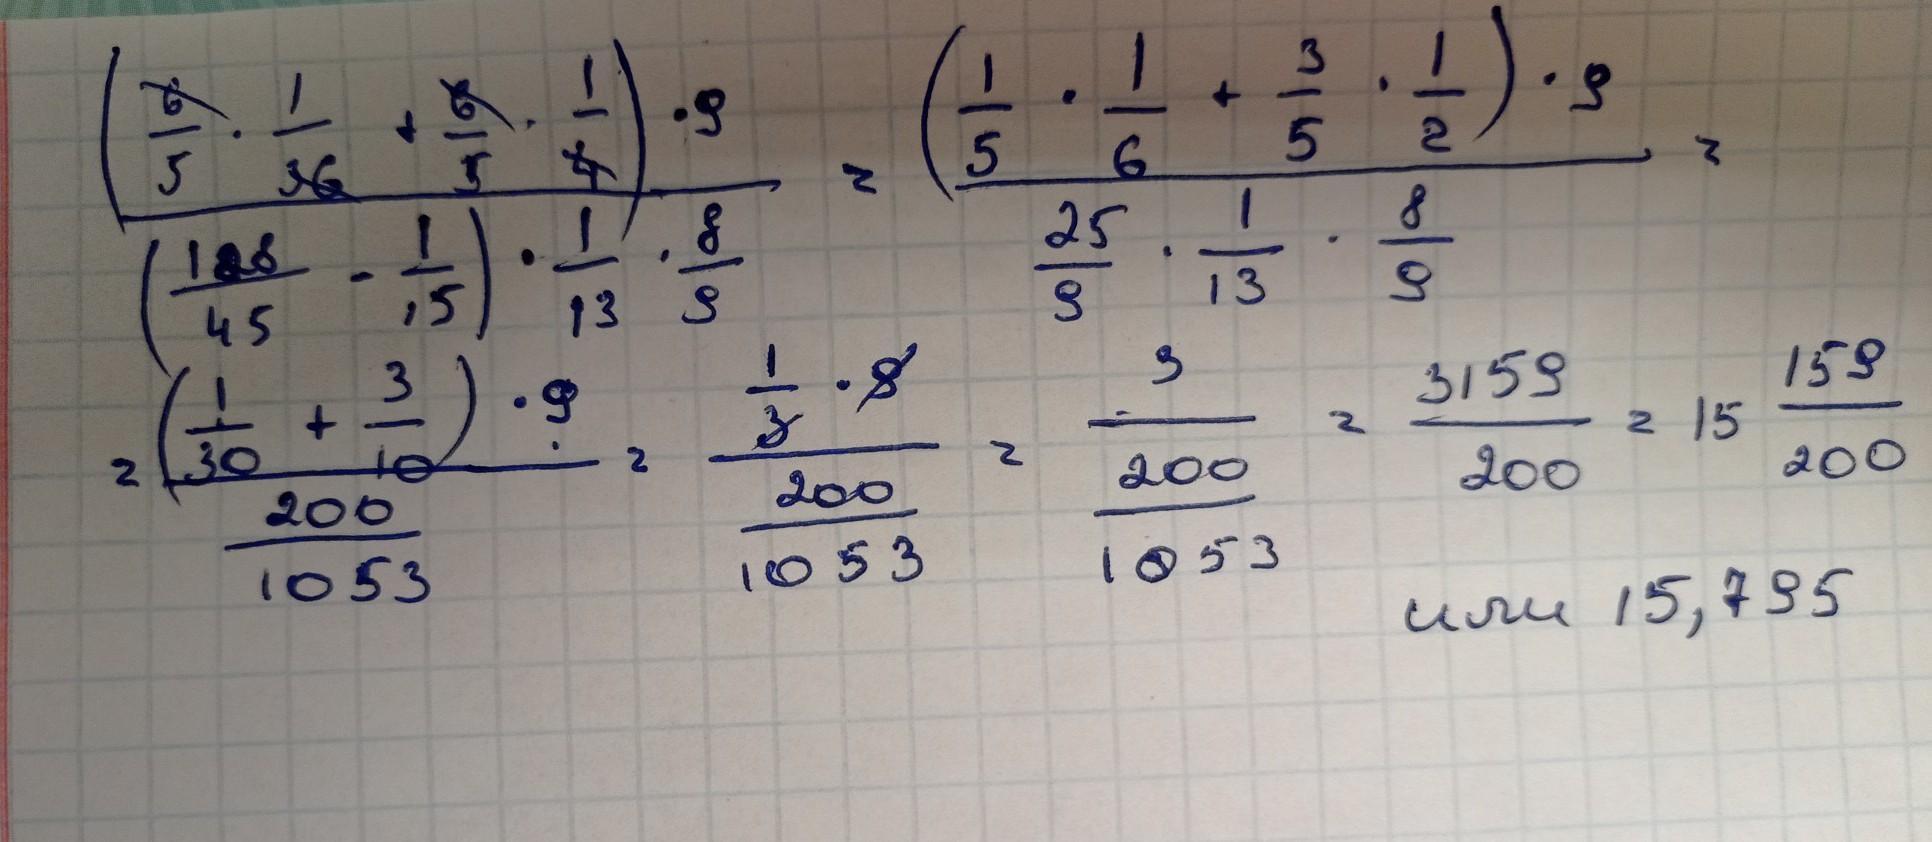 (6/5 · 1/36 + 6/5 · 1/4) · 9 / (128/45 - 1/15) · 1/13 · 8/9 = (1/5 · 1/6 + 3/5 · 1/2) · 9 / 25/9 · 1/13 · 8/9 =
= (1/30 + 3/10) · 9 / 200/1053 = 1/3 · 9 / 200/1053 = 3 / 200/1053 = 3159/200 = 15 159/200
или 15,795